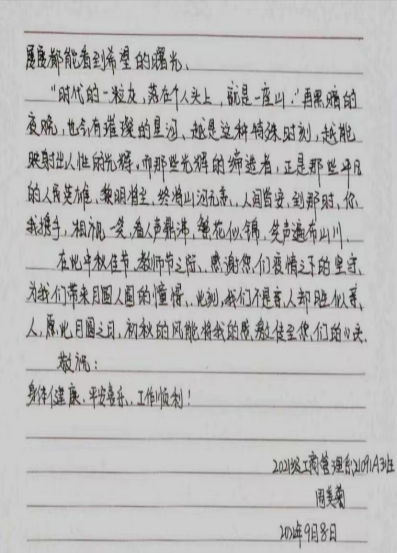 屡屡都能看到希望的曙光、
“时代的一粒灰，落在个人头上，就是一座山。”再黑暗的
夜晚，也会有璀璨的星河、越是这种特殊时刻，越能
映射出人性的光辉。而那些光辉的缔造者，正是那些平凡
的人民英雄、黎明将至、终将山河无恙、人间皆安、到那时、你
我携手，相视一笑、看人声鼎沸、繁花似锦、笑声遍布山川.
在此中秋佳节、教师节之际、感谢您们疫情之下的坚守、
为我们带来月圆人圆的憧憬、此刻，我们不是亲人却胜似亲
人，愿此月圆之日，初秋的风能将我的感激传至您们的心头.
敬祝：
身体健康、平安喜乐、工作顺利！
2021级工商管理系21091A3班
周美菊
2022年9月8日